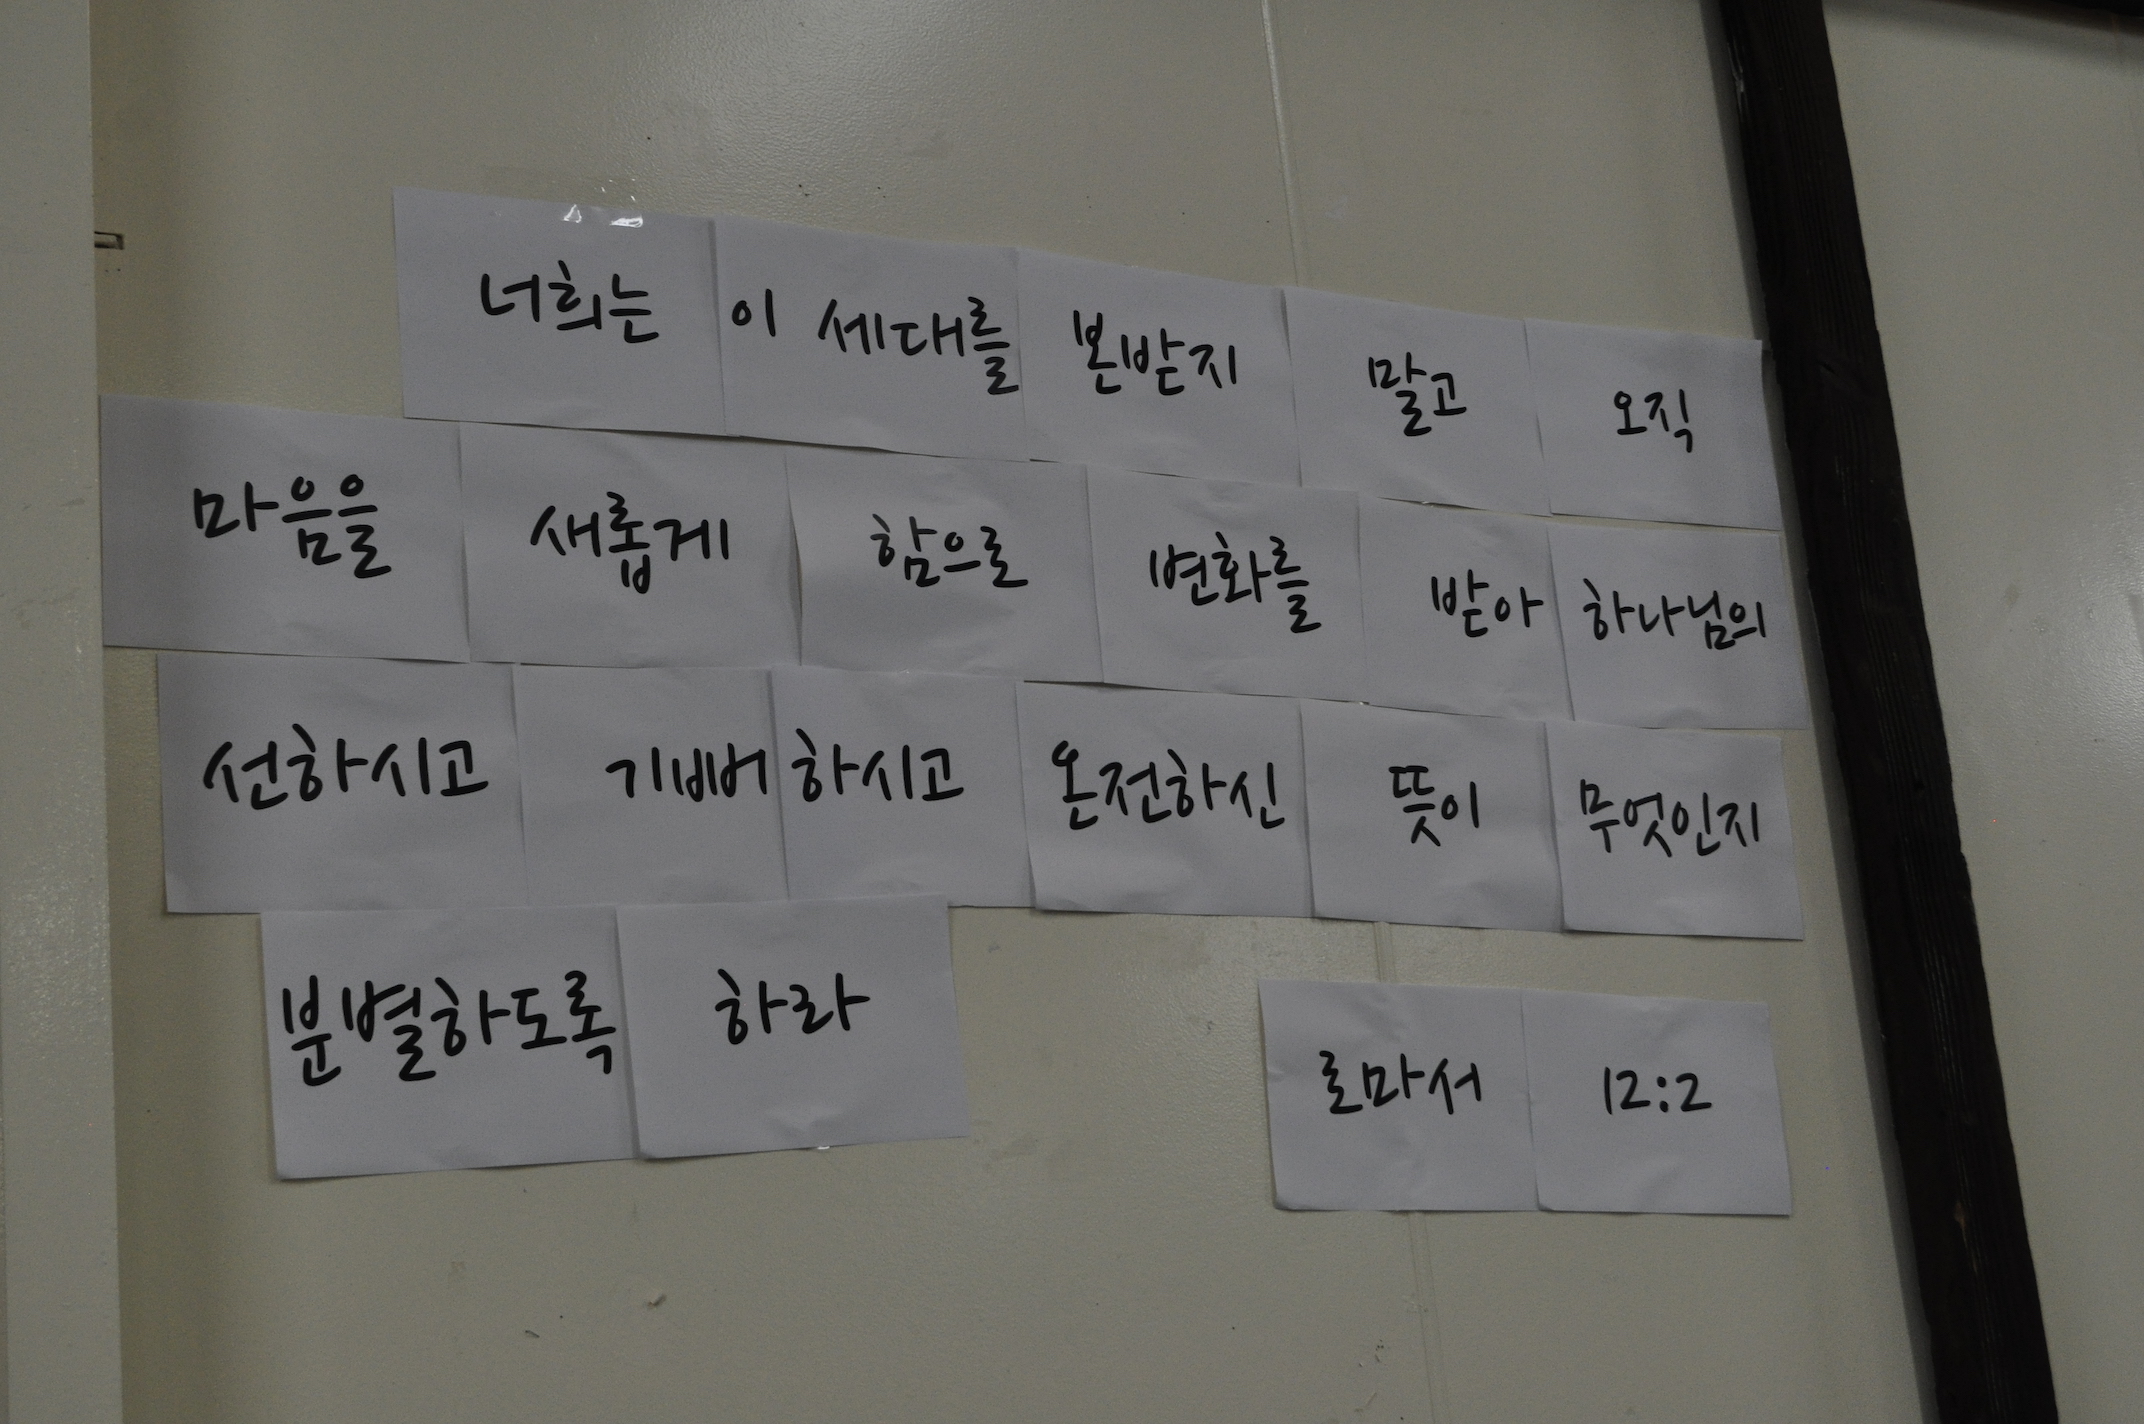 너희는 이 세대를 본받지 말고 오직
마음을 새롭게 함으로 변화를 받아 하나님의
선하시고 기뻐 하시고 온전하신 뜻이 무엇인지
분별하도록 하라
로마서 12:2